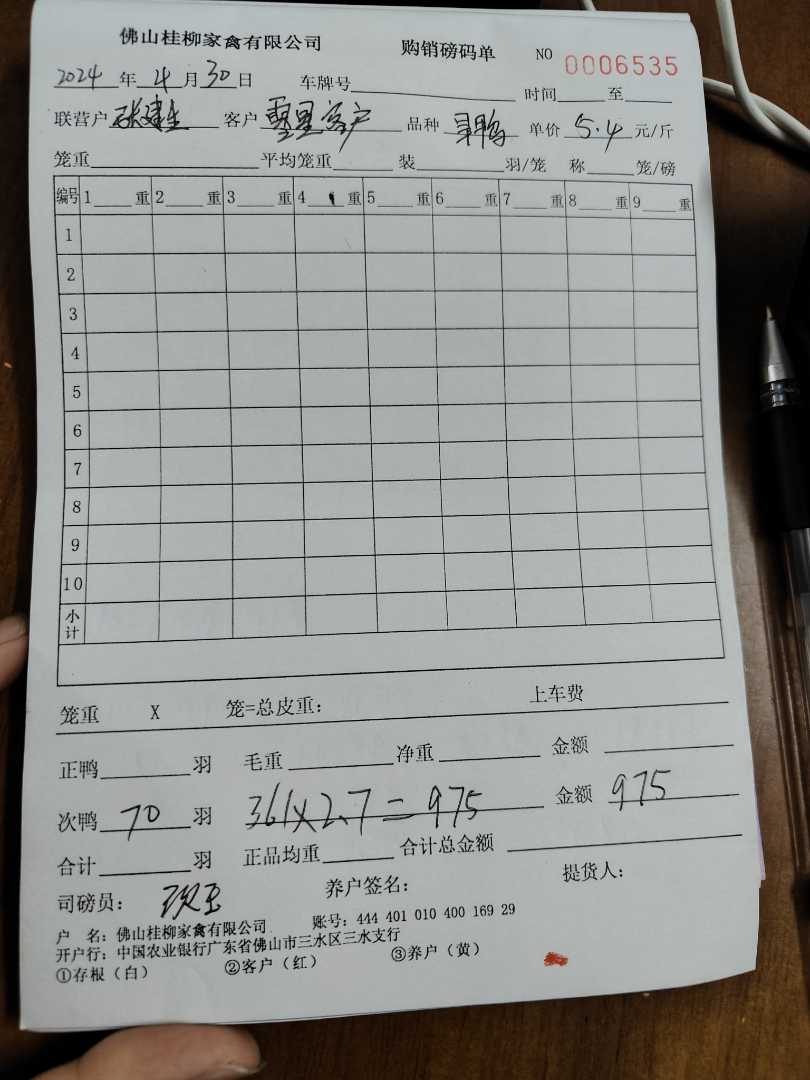 佛山桂柳家禽有限公司 购销磅码单 NO 0006535
2024年4月30日 车牌号 时间 至
联营户 张建生 客户 零星客户 品种 单价 5.4 元/斤
笼重 平均笼重 装 羽/笼 称 笼/磅
编号 1 重 2 重 3 重 4 重 5 重 6 重 7 重 8 重 9 重
1
2
3
4
5
6
7
8
9
10
小计
笼重 X 笼=总皮重: 上车费
正鸭 羽 毛重 净重 金额
次鸭 70 羽 361×2.7=975 金额 975
合计 羽 正品均重 合计总金额
司磅员: 养户签名: 提货人:
户 名: 佛山桂柳家禽有限公司 账号: 444 401 010 400 169 29
开户行: 中国农业银行广东省佛山市三水区三水支行
①存根(白) ②客户(红) ③养户(黄)